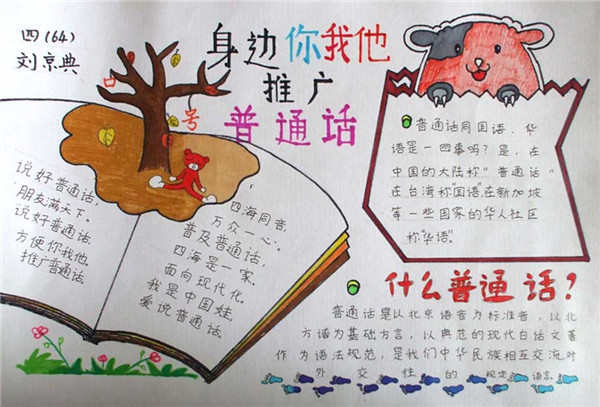 四(64)
刘京典
身边你我他
推广
普通话
号
说好普通话,
朋友满天下。
说好普通话
方便你我他
推广普通话
四海同音,
万众一心。
普及普通话,
四海是一家。
面向现代化,
我是中国娃,
爱说普通话。
普通话同国语、华
语是一回事吗?是,在
中国的大陆称"普通话"
在台湾称"国语"在新加坡
等一些国家的华人社区
称"华语"。
什么普通话?
普通话是以北京语音为标准音,以北
方话为基础方言,以典范的现代白话文著
作为语法规范,是我们中华民族相互交流对
外交性的规定语言.